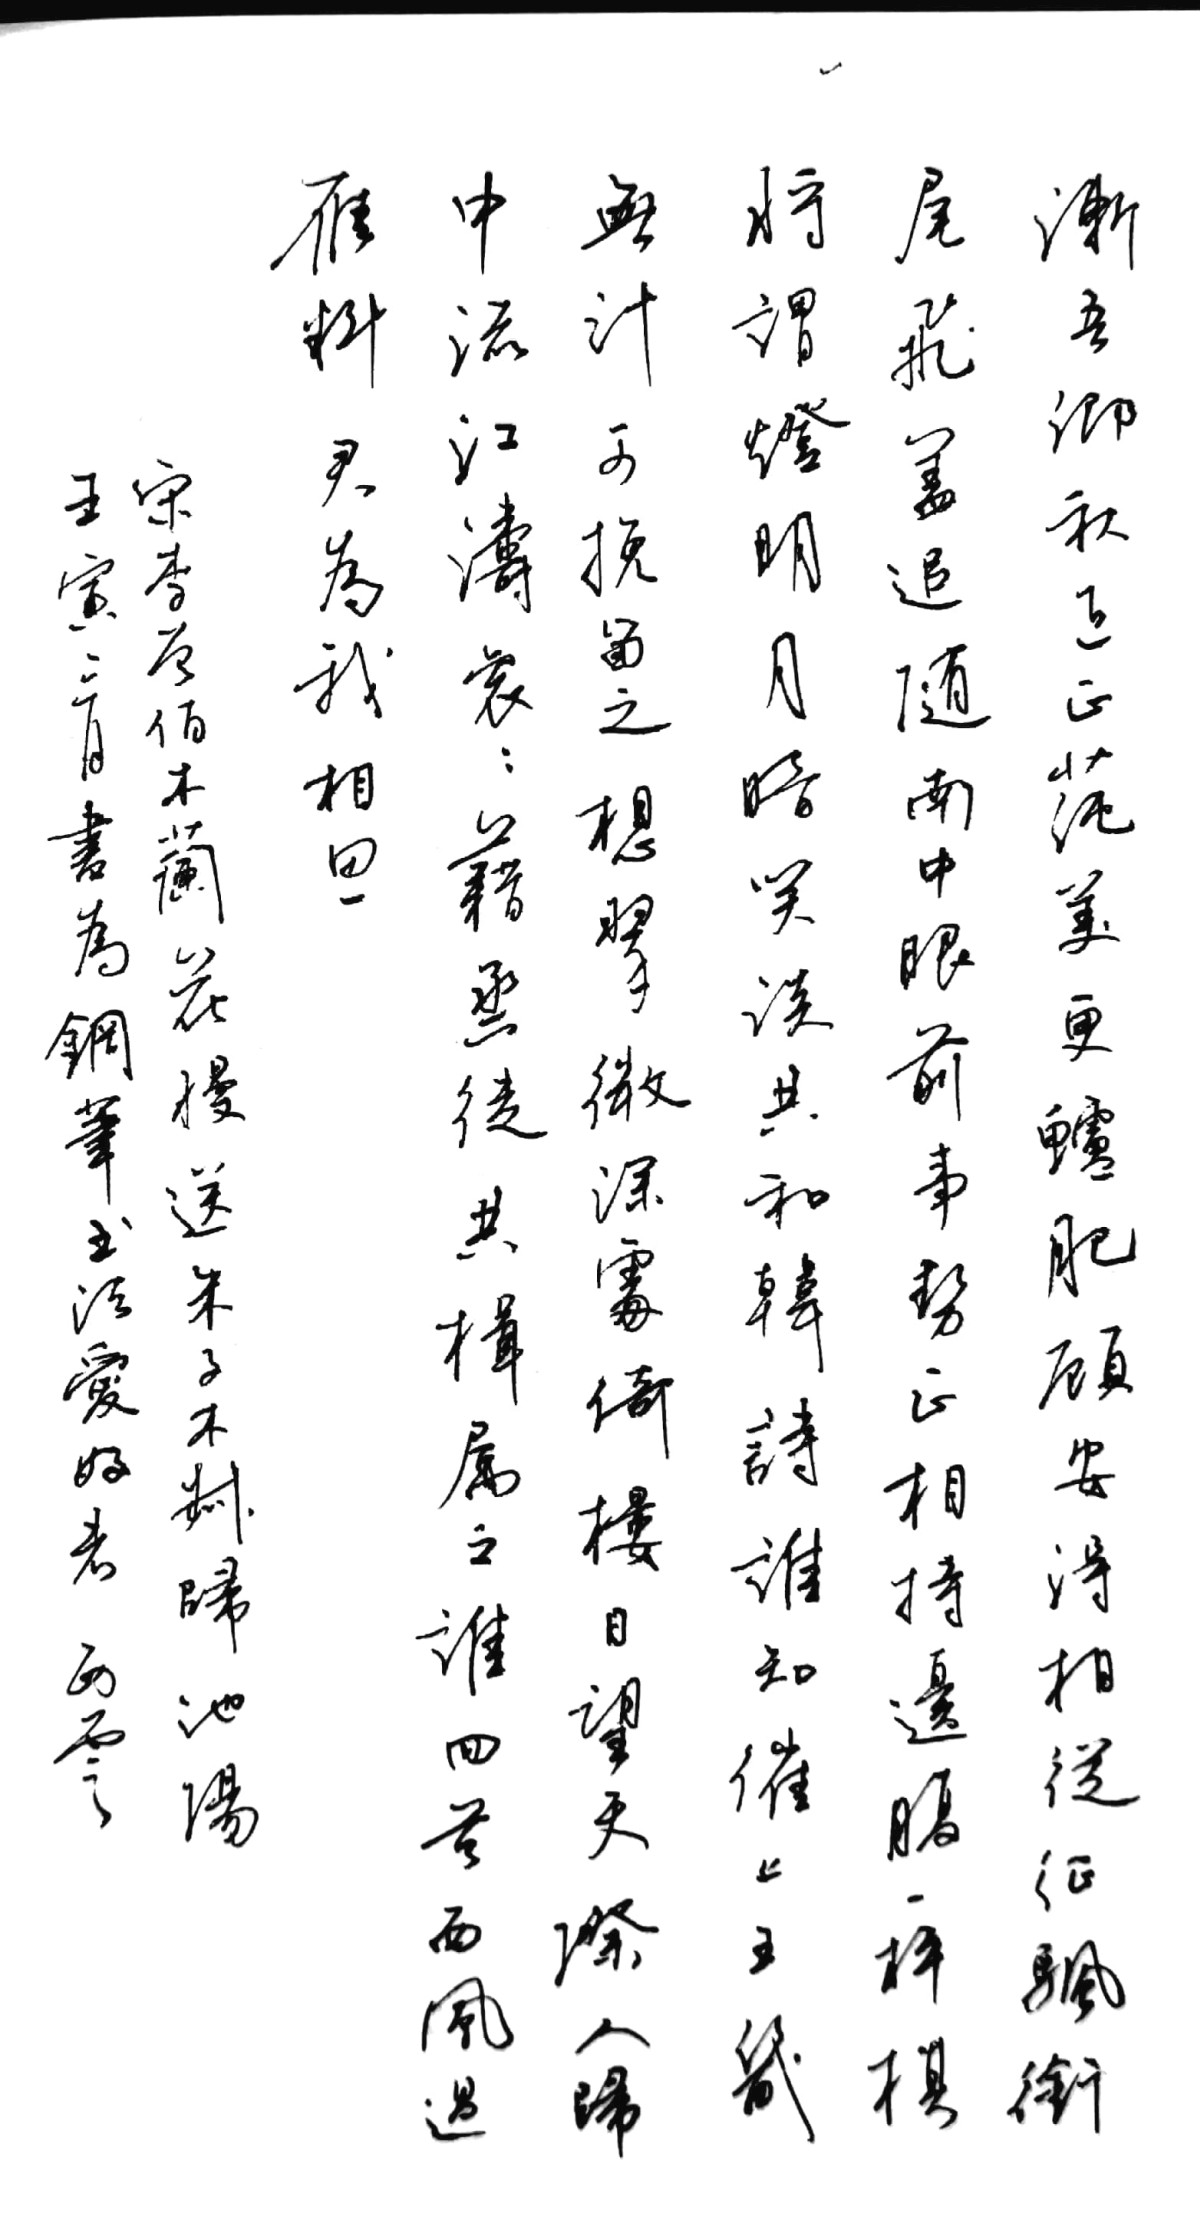 漸吾鄉秋近正蒓美更鱸肥顧安得相從征颿銜
尾飛蓋追隨南中眼前事勢正相持邊腹一枰棋
將謂燈明月暗笑談共和韓詩誰知催上王畿
無計可挽留之想擘微深處倚樓日望天際人歸
中流江濤袞〻藉烝徒共楫屬之誰回首西風過
雁料君為我相思
宋李曾伯木蘭花慢送朱子木糾歸池陽
壬寅二月書為鋼筆書法愛好者 西雲